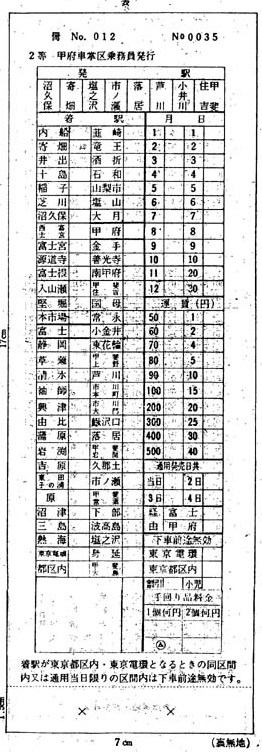 冊 No. 012　No0035
2等 甲府車掌区乗務員発行
発　駅
沼久保 寄畑 塩之沢 市ノ瀬 落居 芦川 小井川 住甲吉斐
着　駅　月　日
内船 韮崎 1 1
寄畑 竜王 2 2
井出 酒折 3 3
十島 石和 4 4
稲子 山梨市 5 5
芝川 塩山 6 6
沼久保 大月 7 7
西富士宮 甲府 8 8
富士宮 金手 9 9
源道寺 善光寺 10 10
富士根 南甲府 11 20
入山瀬 甲斐住吉 12 30
竪堀 国母 運賃(円)
本市場 常永 50 1
富士 小井川 60 2
静岡 東花輪 70 4
草薙 甲斐上野 80 5
清水 芦川 90 10
油師 市川本町 100 15
興津 市川大門 200 20
由比 鰍沢口 300 25
蒲原 落居 400 30
岩渕 甲斐岩間 500 40
吉原 久那土 通用発売日共
東田子の浦 市ノ瀬 当日 2日
原 甲斐常葉 3日 4日
沼津 下部 経富士
三島 波高島 由甲府
熱海 塩之沢 下車前途無効
東京電環 身延 東京電環
都区内 甲斐大島 東京都区内
割引 小児
手回り品料金
1個何円 2個何円
着駅が東京都区内・東京電環となるときの同区間
内又は通用当日限りの区間内は下車前途無効です。
7cm　(裏無地)